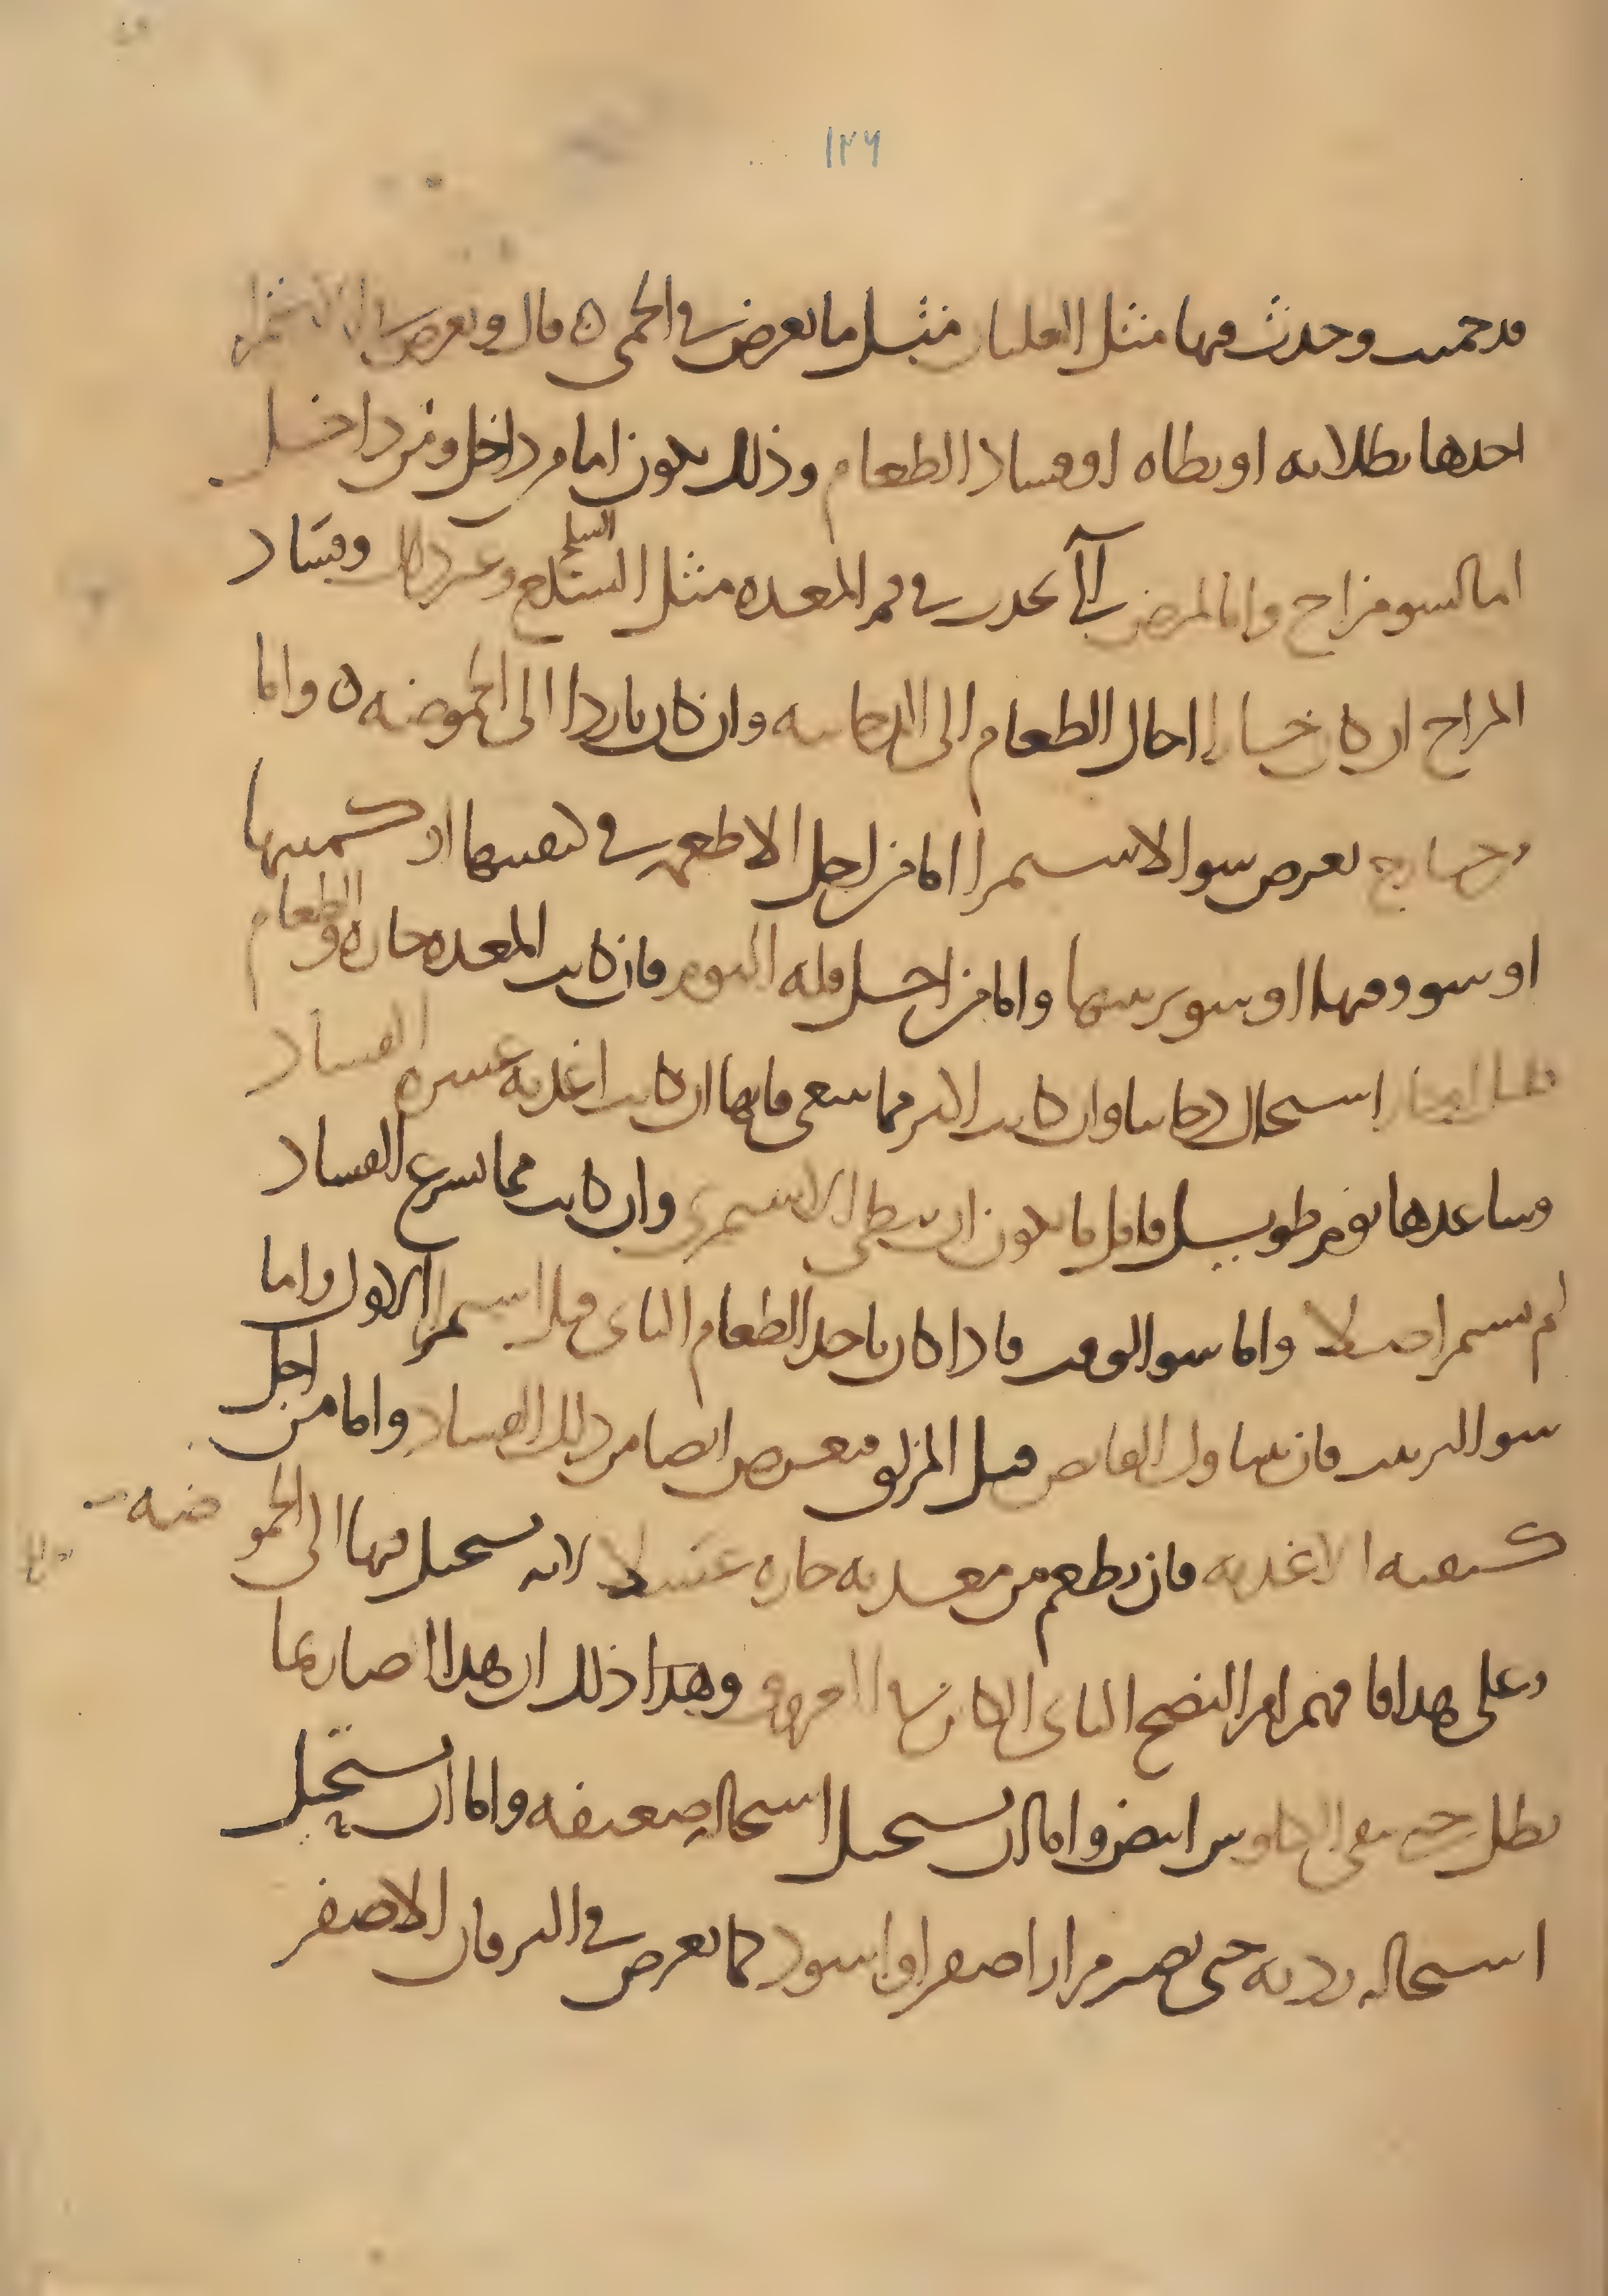 ١٢٦
قد حميت وحدث فيها مثل الغليان مثل ما يعرض في الحمى ه قال ويعرض في الاستمرا
احدها بطلانه او بطاه او فساد الطعام وذلك يكون اما من داخل ومن داخل
اما لسو مزاج واما لمرض آلي يحدث في فم المعدة مثل السلع السلع وغير ذلك وفساد
المزاج ان كان حارا احال الطعام الى الدخانيه وان كان باردا الى الحموضه ه واما
من خارج يعرض سو الاستمرا اما من اجل الاطعمه في كيفيتها او كميتها
او سو وقتها او سو ترتيبها واما من اجل قله النوم فان كانت المعده حاره والطعام
استحال دخانيا وان كانت اكثر مما ينبغي فانها ان كانت اغذيه عسره الفساد
وساعدها نوم طويل فاقل ما يكون ان يبطى الاستمرى وان كانت مما يسرع الفساد
لم يستمر اصلا واما سو الوقت فاذا كان ياخذ الطعام الثاني قبل استمرا الاول واما
سو الترتيب فان يتناول القابض قبل المزلق فيعرض ايضا من ذلك الفساد واما من اجل
كيفيه الاغذيه فان يطعم من معدته حاره عسلا لانه يستحيل فيها الى الحموضه
وعلى هذا فافهم امر النضج الثاني الكائن في العروق وهذا ذلك ان هذا ايضا ربما
بطل حتى يبقى الكلوس ابيض واما ان يستحيل استحاله ضعيفه واما ان يستحيل
استحاله رديه حتى يصير مرارا اصفر او اسود كما يعرض في اليرقان الاصفر